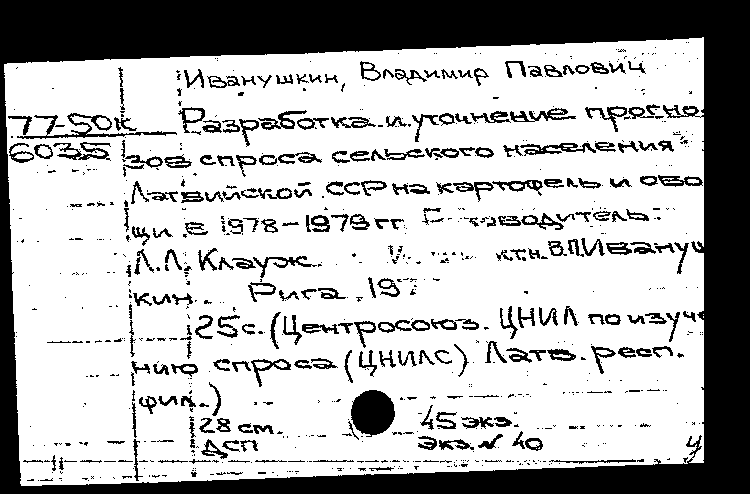 Иванушкин, Владимир Павлович
77-50к Разработка и уточнение прогно
6035 зов спроса сельского населения
Латвийской ССР на картофель и ово
щи в 1978-1979 гг.
Л.Л. Клауж. к.т.н. В.П. Ивануш
кин. Рига. 197
25с. (Центросоюз. ЦНИЛ по изуче
нию спроса (ЦНИЛС) Латв. респ.
фил.)
28 см. 45 экз.
ДСП Экз. № 40
у